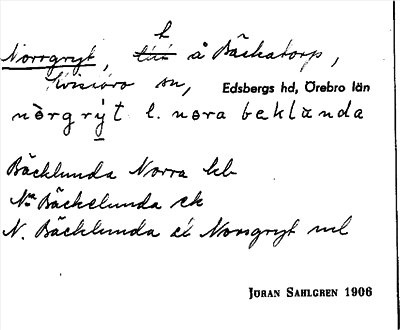 h
Norrgryt, å Bäckatorp,
Kvistbro sn, Edsbergs hd, Örebro län
nòrgrýt l. nora beklunda
Bäcklunda Norra kb
Na Bäckelunda ek
N. Bäcklunda el Norrgryt ml
JÖRAN SAHLGREN 1906